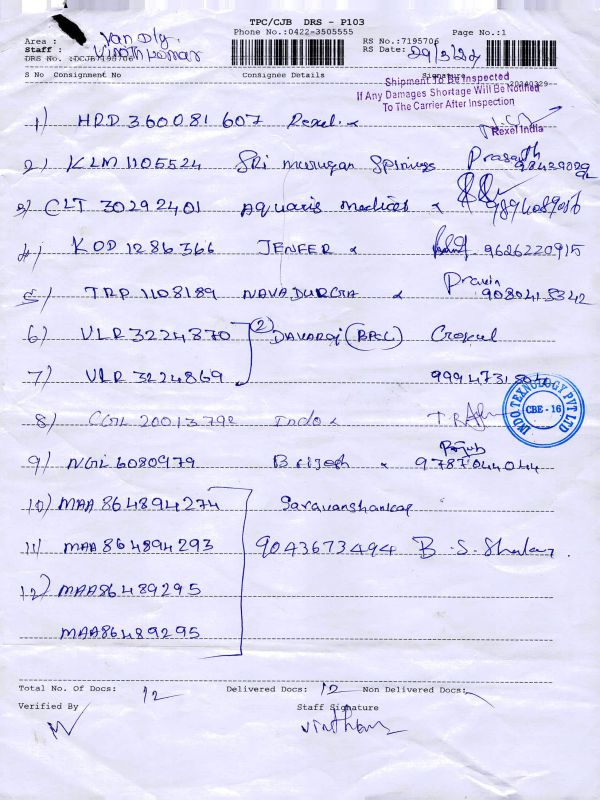 TPC/CJB DRS - P103
Area : Van Dly. Phone No.:0422-3505555 RS No.:7195706 Page No.:1
Staff : Vinoth Kumar RS Date: 29/3/24
DRS No. :DCJB7195706
S No Consignment No Consignee Details Signature
Shipment To Be Inspected
If Any Damages Shortage Will Be Notified
To The Carrier After Inspection
1) HRD 360081607 Rexel. x Rexel India
2) KLM 1105524 SRi murugan Spinings Prasanth
3) CLT 30292401 Aquaris medices x
4) KOD 1286366 JENEER x 9626220915
5) TRP 1108189 NAVADURGA x Pravin 9080415342
6) VLR 3224870 (2) DAVARaj (BPCL) Gokul
7) VLR 3224869
8) CGL 20013792 Indo x T. RAJ
INDO TEXNOLOGY PVT LTD
CBE - 16
9) NGL 6080979 Brijesh x 9787044044
10) MAA 864894274 Saravanshankar
11) MAA 864894293 9043673494 B. S. Shankar.
12) MAA86489295
MAA86489295
Total No. Of Docs: 12 Delivered Docs: 12 Non Delivered Docs:
Verified By Staff Signature